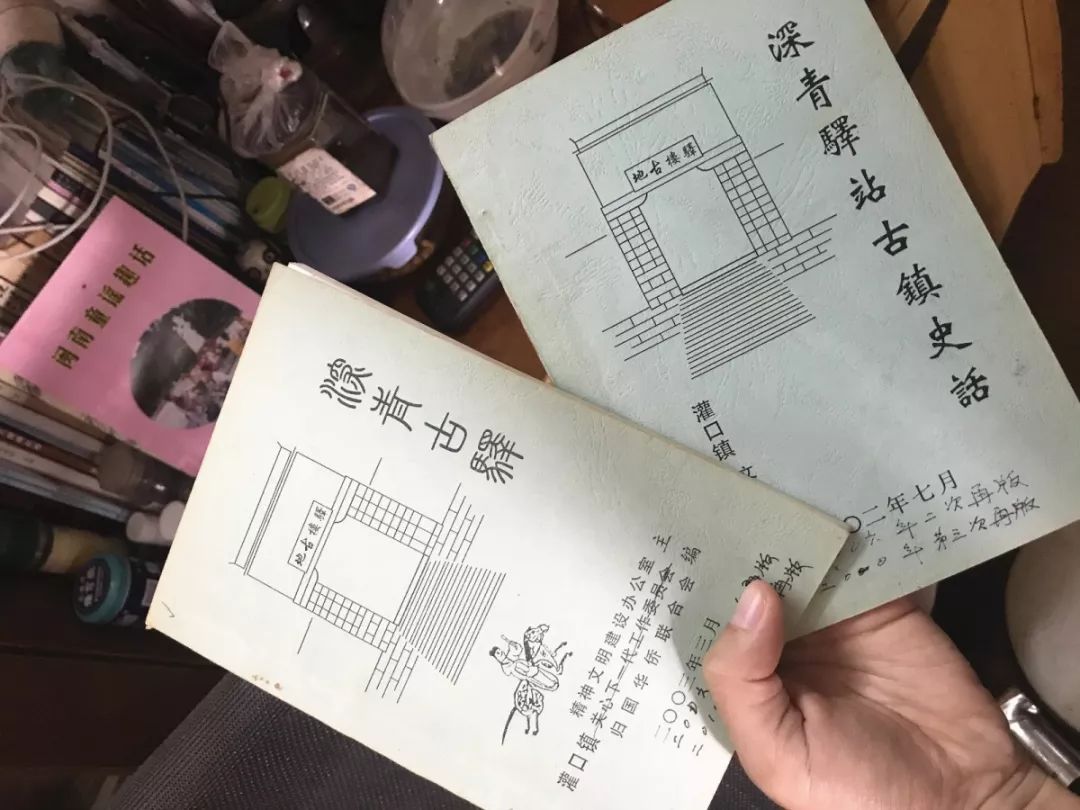 深青驛站古鎮史話
驛樓古地
灌口镇文
〇二年七月
六年二次再版
年第三次再版
深青古驛
驛樓古地
精神文明建设办公室
灌口镇关心下一代工作委员会
归国华侨联合会
主
编
二〇〇三年三月
再版
闽南童谣趣话